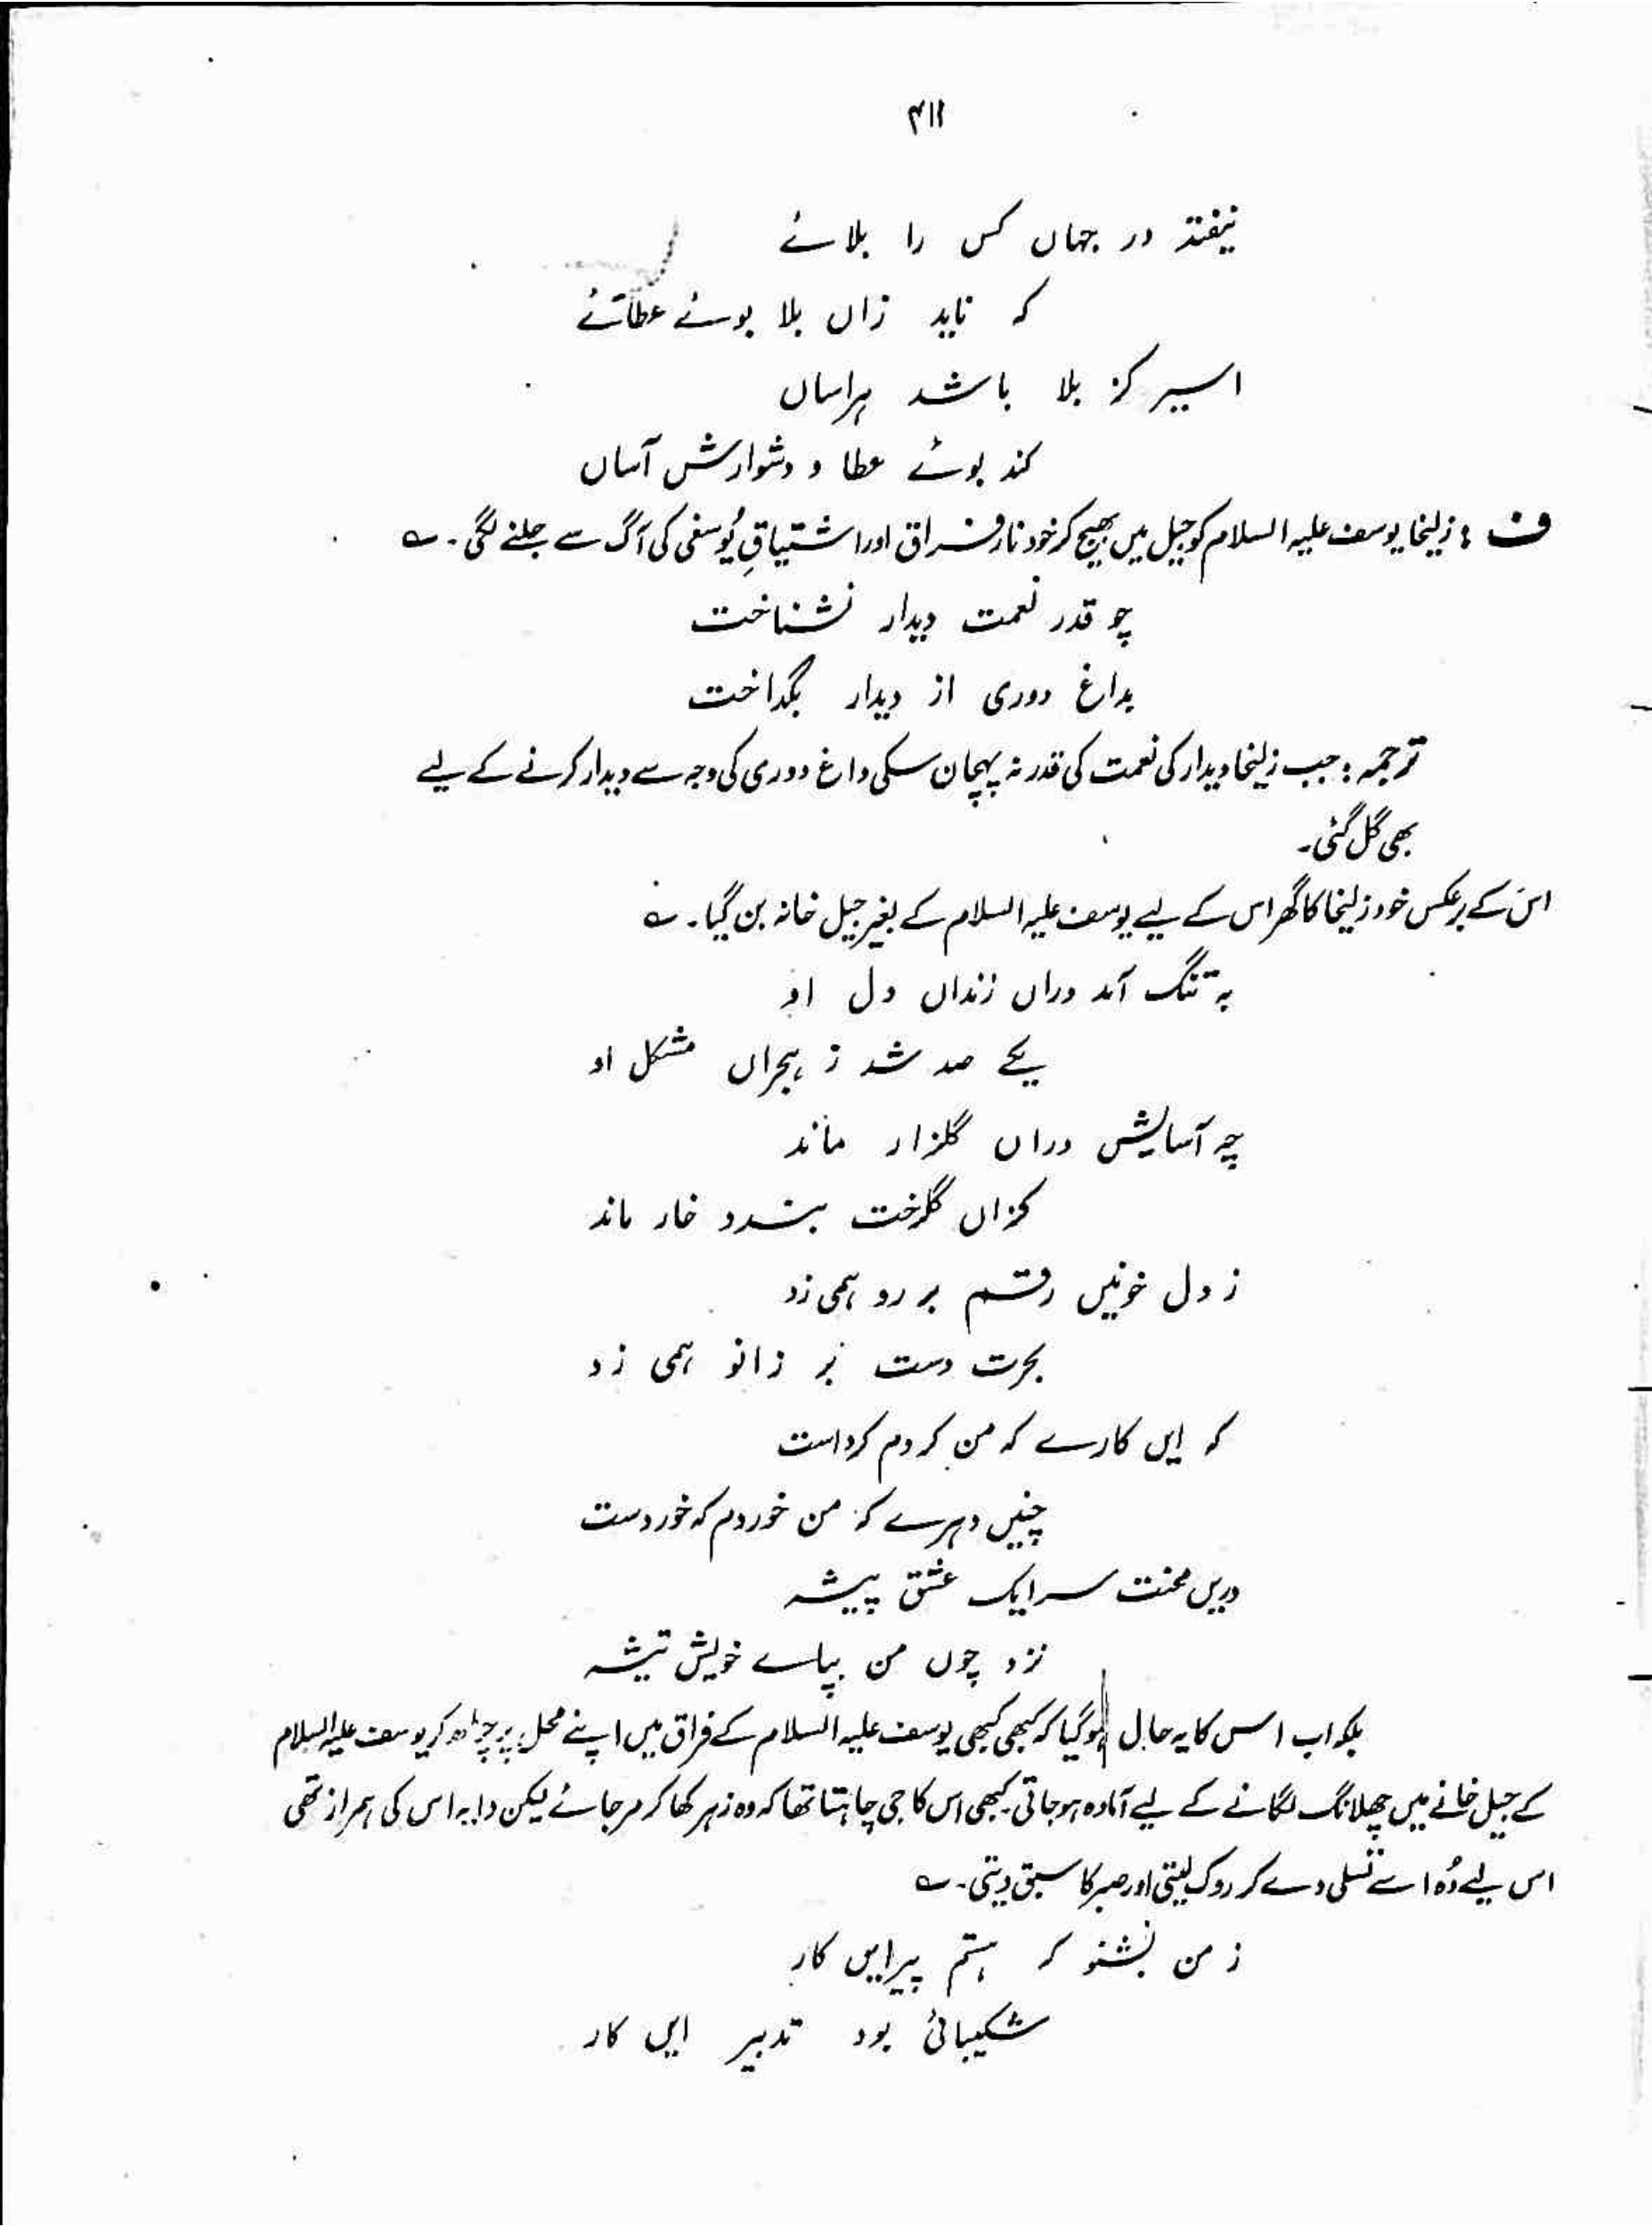 ۴۱۱
نیفتد در جہاں کس را بلائے
کہ ناید زاں بلا بوئے عطائے
اسیر کز بلا باشد ہراساں
کند بوئے عطا و دشوارش آساں
ف : زلیخا یوسف علیہ السلام کو جیل میں بھیج کر خود نار فراق اور اشتیاقِ یُوسفی کی آگ سے جلنے لگی۔ ؎
چو قدر نعمت دیدار نشناخت
بداغ دوری از دیدار بگداخت
ترجمہ : جب زلیخا دیدار کی نعمت کی قدر نہ پہچان سکی داغ دوری کی وجہ سے دیدار کرنے کے لیے
بھی گل گئی۔
اس کے برعکس خود زلیخا کا گھر اس کے لیے یوسف علیہ السلام کے بغیر جیل خانہ بن گیا۔ ؎
بہ تنگ آمد دراں زنداں دل او
یکے صد شد ز ہجراں مشکل او
چہ آسایش دراں گلزار ماند
کزاں گلرخت بندد خار ماند
ز دل خونیں رقم بر رو ہمی زد
بحرت دست بر زانو ہمی زد
کہ ایں کارے کہ من کردم کرد است
چنیں دہرے کہ من خوردم کہ خوردست
دریں محنت سرایک عشق پیشہ
نزد چوں من بپاے خویش تیشہ
بلکہ اب اس کا یہ حال ہو گیا کہ کبھی کبھی یوسف علیہ السلام کے فراق میں اپنے محل پر چڑھ کر یوسف علیہ السلام
کے جیل خانے میں چھلانگ لگانے کے لیے آمادہ ہو جاتی۔ کبھی اس کا جی چاہتا تھا کہ وہ زہر کھا کر مر جائے لیکن دایہ اس کی ہمراز تھی
اس لیے وُہ اسے تسلی دے کر روک لیتی اور صبر کا سبق دیتی۔ ؎
ز من بشنو کہ ہستم پیر ایں کار
شکیبائی بود تدبیر ایں کار